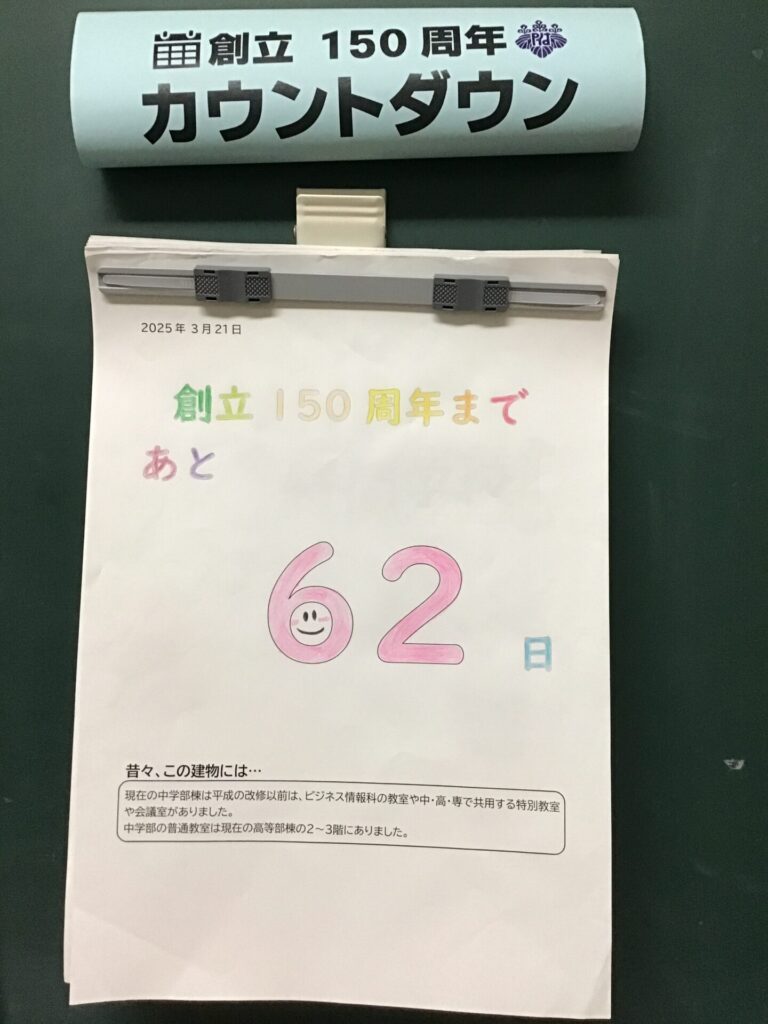 創立 150 周年
カウントダウン
2025年 3月21日
創立150周年まで
あと
62
日
昔々、この建物には…
現在の中学部棟は平成の改修以前は、ビジネス情報科の教室や中・高・専で共用する特別教室
や会議室がありました。
中学部の普通教室は現在の高等部棟の2～3階にありました。